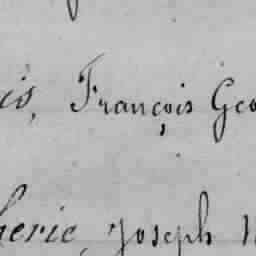 cis, François Geo
herie, Joseph